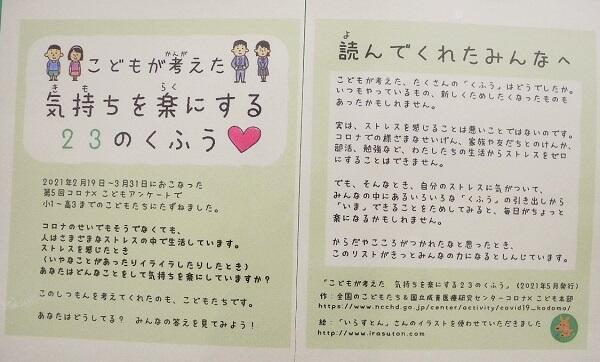 こどもが考えた
かんが
気持ちを楽にする
き も らく
23のくふう
2021年2月19日～3月31日におこなった
第5回コロナ×こどもアンケートで
小1～高3までのこどもたちにたずねました。
コロナのせいでもそうでなくても、
人はさまざまなストレスの中で生活しています。
ストレスを感じたとき
(いやなことがあったりイライラしたりしたとき)
あなたはどんなことをして気持ちを楽にしていますか?
このしつもんを考えてくれたのも、こどもたちです。
あなたはどうしてる? みんなの答えを見てみよう!
読んでくれたみんなへ
よ
こどもが考えた、たくさんの「くふう」はどうでしたか。
いつもやっているもの、新しくためしたくなったものも
あったかもしれません。
実は、ストレスを感じることは悪いことではないのです。
コロナでの様ざまなせいげん、家族や友だちとのけんか、
部活、勉強など、わたしたちの生活からストレスをゼロ
にすることはできません。
でも、そんなとき、自分のストレスに気がついて、
みんなの中にあるいろいろな「くふう」の引き出しから
「いま」できることをためしてみると、毎日がちょっと
楽になるかもしれません。
からだやこころがつかれたなと思ったとき、
このリストがきっとみんなの力になるとしんじています。
"こどもが考えた 気持ちを楽にする23のくふう" (2021年5月発行)
作:全国のこどもたち&国立成育医療研究センターコロナ×こども本部
https://www.ncchd.go.jp/center/activity/covid19_kodomo/
絵:「いらすとん」さんのイラストを使わせていただきました
http://www.irasuton.com